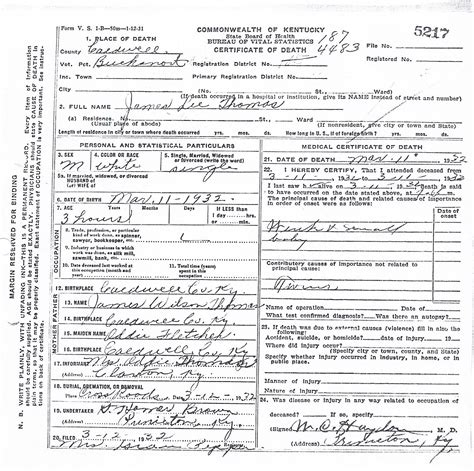 Form V. S. 1-B—50m—1-12-31
COMMONWEALTH OF KENTUCKY
State Board of Health
BUREAU OF VITAL STATISTICS
CERTIFICATE OF DEATH
187
4483
5217
File No.
Registered No.
1. PLACE OF DEATH
County Caldwell
Vot. Pct.
Registration District No.
Inc. Town
Primary Registration District No.
City
No.
St.
Ward
(If death occurred in a hospital or institution, give its NAME instead of street and number)
2. FULL NAME James Lee Thomas
(a) Residence. No.
(Usual place of abode)
(If nonresident, give city or town and State)
Length of residence in city or town where death occurred yrs. mos. ds. How long in U. S., if of foreign birth? yrs. mos. ds.
PERSONAL AND STATISTICAL PARTICULARS
3. SEX
M
4. COLOR OR RACE
white
5. Single, Married, Widowed
or Divorced (write the word)
single
5a. If married, widowed, or divorced
HUSBAND of
(or) WIFE of
6. DATE OF BIRTH Mar. 11-1932.
7. AGE Years Months Days If LESS than
1 day hrs.
or min.
3 hours
OCCUPATION
8. Trade, profession, or particular
kind of work done, as spinner,
sawyer, bookkeeper, etc.
9. Industry or business in which
work was done, as silk mill,
sawmill, bank, etc.
10. Date deceased last worked at
this occupation (month and
year)
11. Total time (years)
spent in this
occupation
12. BIRTHPLACE Caldwell Co. Ky.
MOTHER FATHER
13. NAME James Wilson Thomas
14. BIRTHPLACE Caldwell Co. Ky.
15. MAIDEN NAME Eddie Fletcher
16. BIRTHPLACE Caldwell Co. Ky.
17. Mrs. Eddie Thomas
Ky.
18. BURIAL, CREMATION, OR REMOVAL
Cross Roads 3-12-1932
19. UNDERTAKER Brown
Princeton Ky.
20. FILED 3-12 1932
Mrs.
MEDICAL CERTIFICATE OF DEATH
21. DATE OF DEATH Mar. 11 1932
22. I HEREBY CERTIFY, That I attended deceased from
3-11 1932 to 3-11 1932
I last saw h alive on 3-11 1932 death is said
to have occurred on the date stated above, at m.
The principal cause of death and related causes of
importance in order of onset were as follows:
Date of
onset
Weak & small
baby
Contributory causes of importance not related to
principal cause:
Twins
Name of operation Date of
What test confirmed diagnosis? Was there an autopsy?
23. If death was due to external causes (violence) fill in also the
following:
Accident, suicide, or homicide? Date of injury 19
Where did injury occur?
(Specify city or town, county, and State)
Specify whether injury occurred in industry, in home, or in
public place.
Manner of injury
Nature of injury
24. Was disease or injury in any way related to occupation of
deceased?
If so, specify
(Signed) W. C. Haydon M. D.
Princeton, Ky
MARGIN RESERVED FOR BINDING
N. B. WRITE PLAINLY, WITH UNFADING INK—THIS IS A PERMANENT RECORD. Every item of information